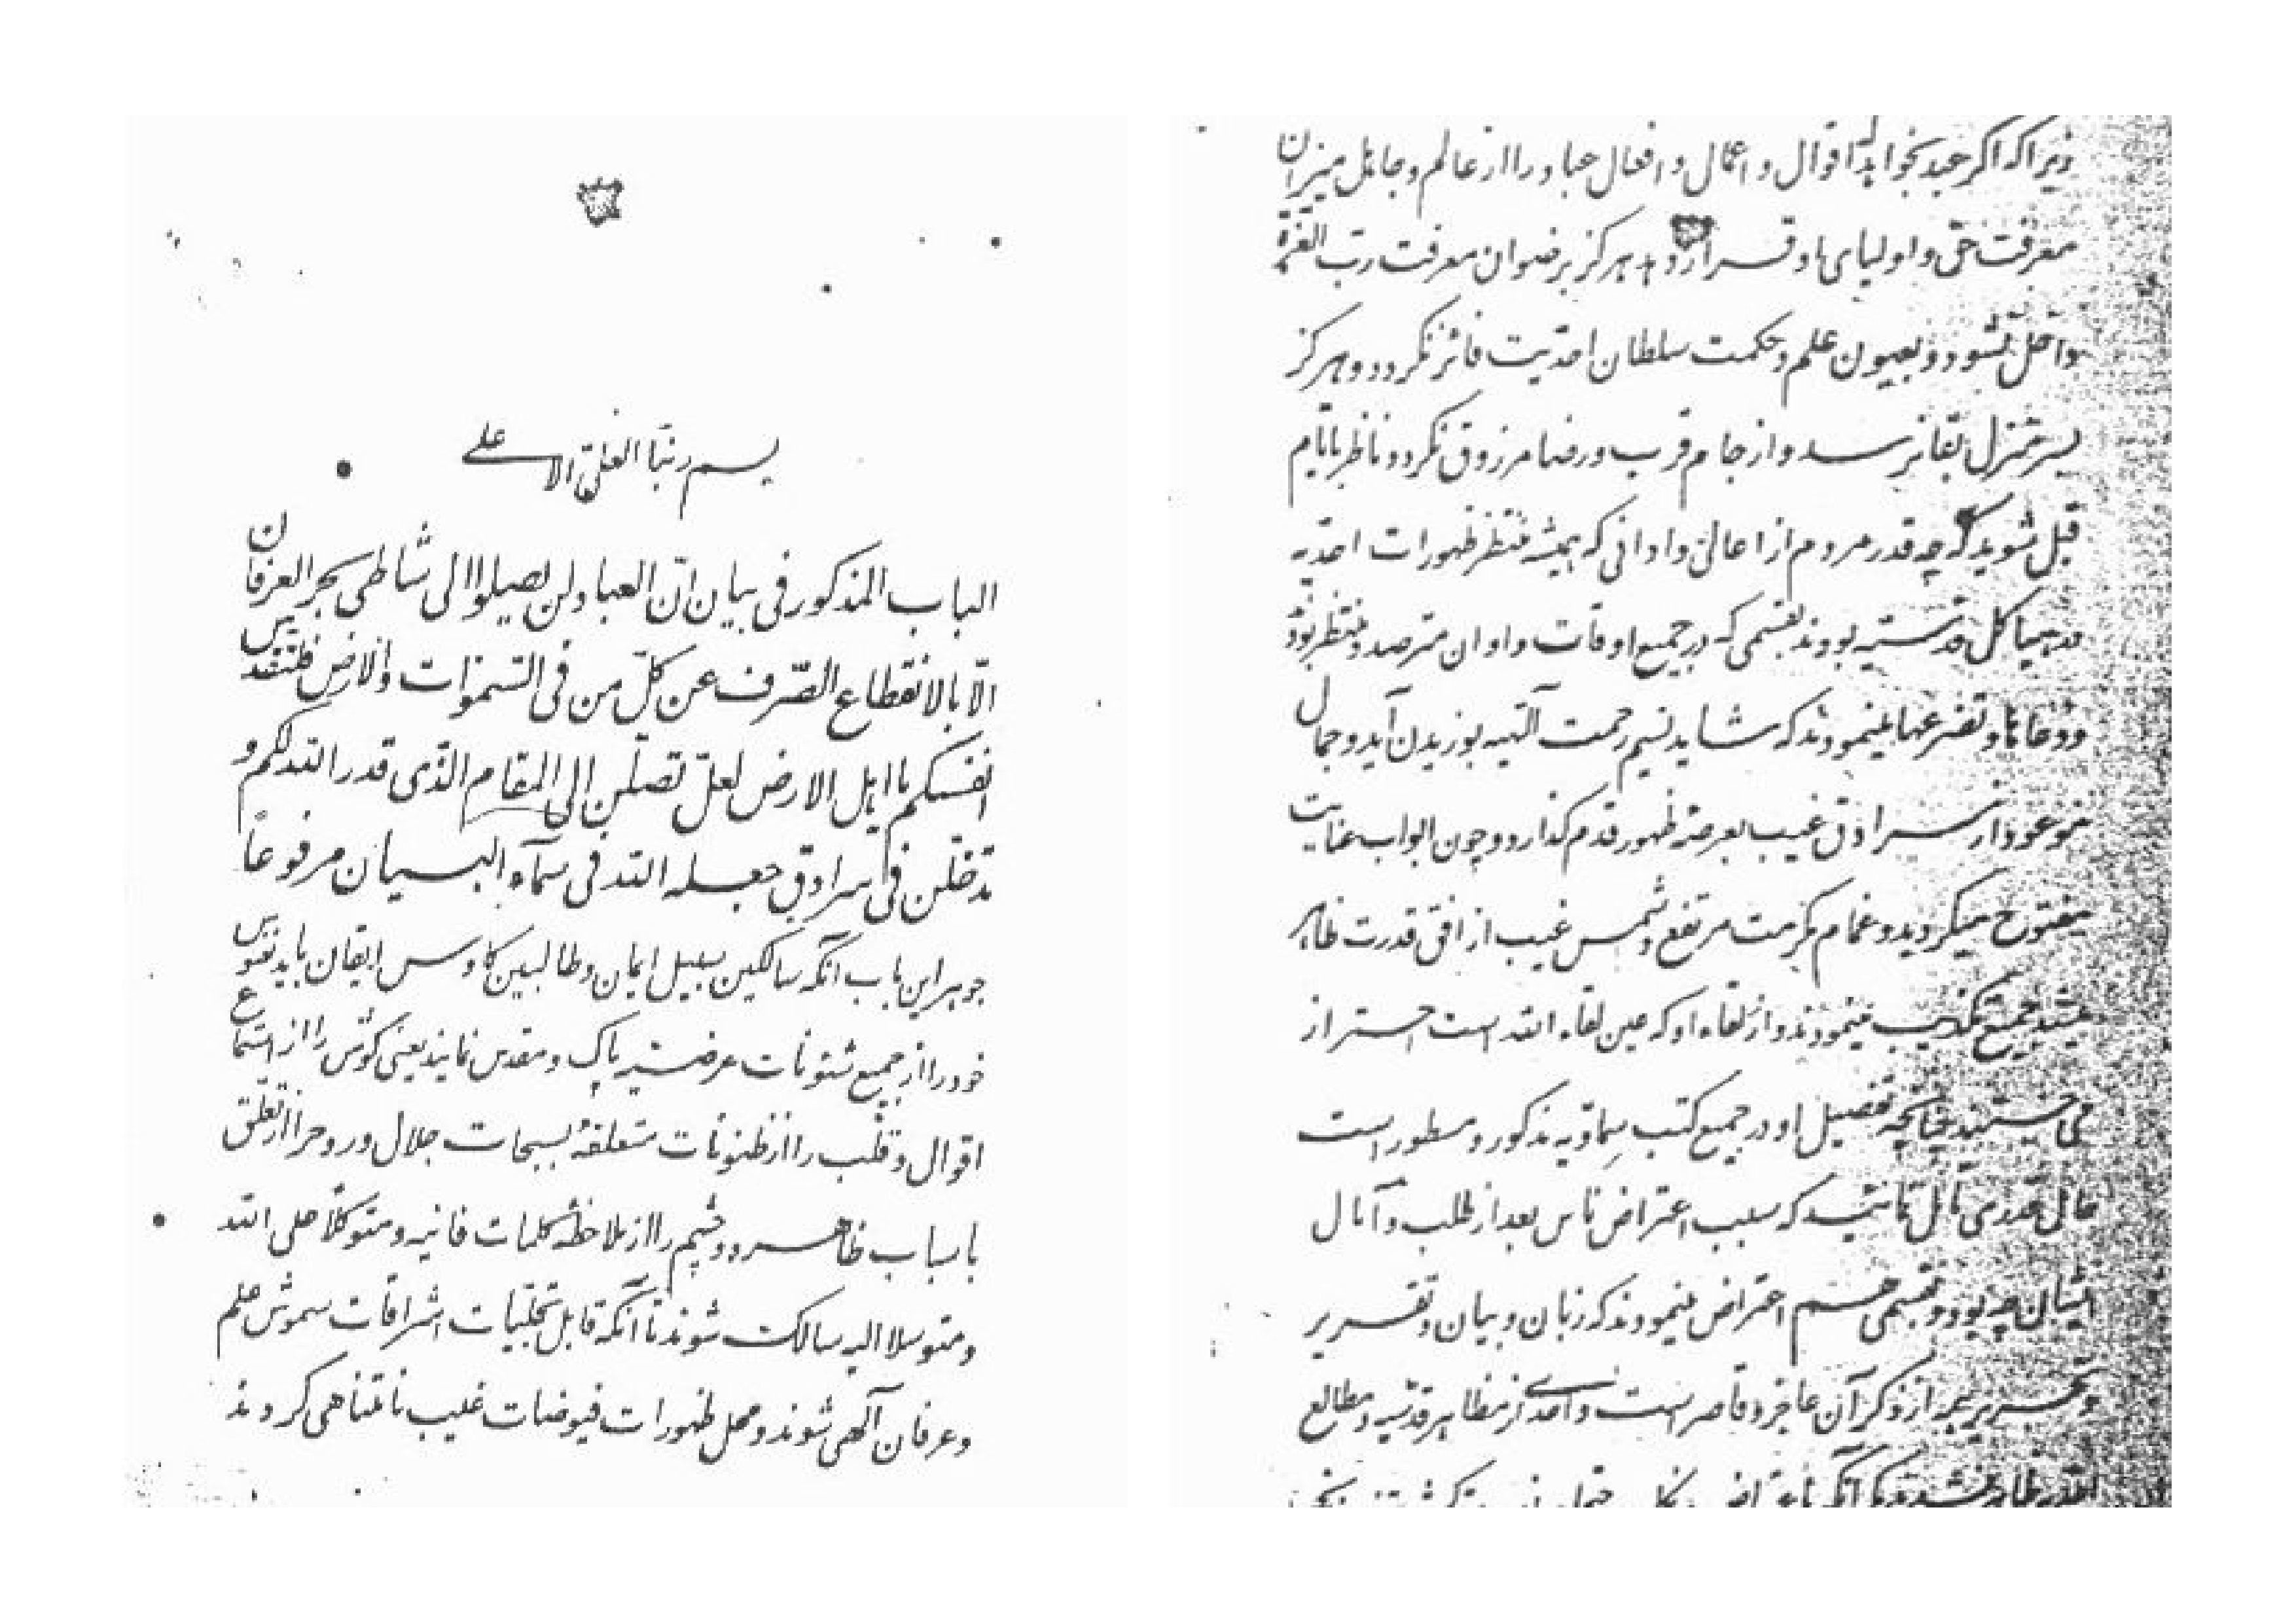 بسم ربنا العلی الاعلی
الباب المذکور فی بیان ان العباد لن یصلوا الی شاطی بحر العرفان
الا بالانقطاع الصرف عن کل من فی السموات والارض قدس
انفسکم یا اهل الارض لعل تصلن الی المقام الذی قدر الله لکم و
تدخلن فی سرادق جعله الله فی سمآء البیان مرفوعاً
جوهر این باب آنکه سالکین سبیل ایمان و طالبین کاوس ایقان باید نفوس
خود را از جمیع شئونات عرضیه پاک و مقدس نمایند یعنی گوش را از استماع
اقوال و قلب را از ظنونات متعلقهٔ بسبحات جلال و روح را از تعلق
باسباب ظاهره و چشم را از ملاحظهٔ کلمات فانیه و متوکلاً علی الله
و متوسلا الیه سالک شوند تا آنکه قابل تجلیات اشراقات شموس علم
و عرفان آلهی شوند و محل ظهورات فیوضات غیب نامتناهی گردند
زیرا که اگر عبد بخواهد اقوال و اعمال و افعال عباد را از عالم و جاهل میزان
معرفت حق و اولیای او قرار دهد هرگز برضوان معرفت رب العزة
داخل نشود و بعیون علم و حکمت سلطان احدیت فائز نگردد و هرگز
بسر منزل بقا نرسد و از جام قرب و رضا مرزوق نگردد ناظر بایام
قبل شوید که چه قدر مردم از اعالی و ادانی که همیشه منتظر ظهورات احدیه
در هیاکل قدسیه بودند بقسمی که در جمیع اوقات و اوان مترصد و منتظر بودند
و دعاها و تضرعها مینمودند که شاید نسیم رحمت آلهیه بوزیدن آید و جمال
موعود از سرادق غیب بعرصهٔ ظهور قدم گذارد و چون ابواب عنایت
مفتوح میگردید و غمام مکرمت مرتفع و شمس غیب از افق قدرت ظاهر
میشد جمیع تکذیب مینمودند و از لقاء او که عین لقاء الله است احتراز
می جستند چنانچه تفصیل او در جمیع کتب سماویه مذکور و مسطور است
حال قدری تامل نمائید که سبب اعتراض ناس بعد از طلب و آمال
ایشان چه بود و بقسمی هم اعتراض مینمودند که زبان و بیان و تقریر
و تحریر همه از ذکر آن عاجز و قاصر است و احدی از مظاهر قدسیه و مطالع